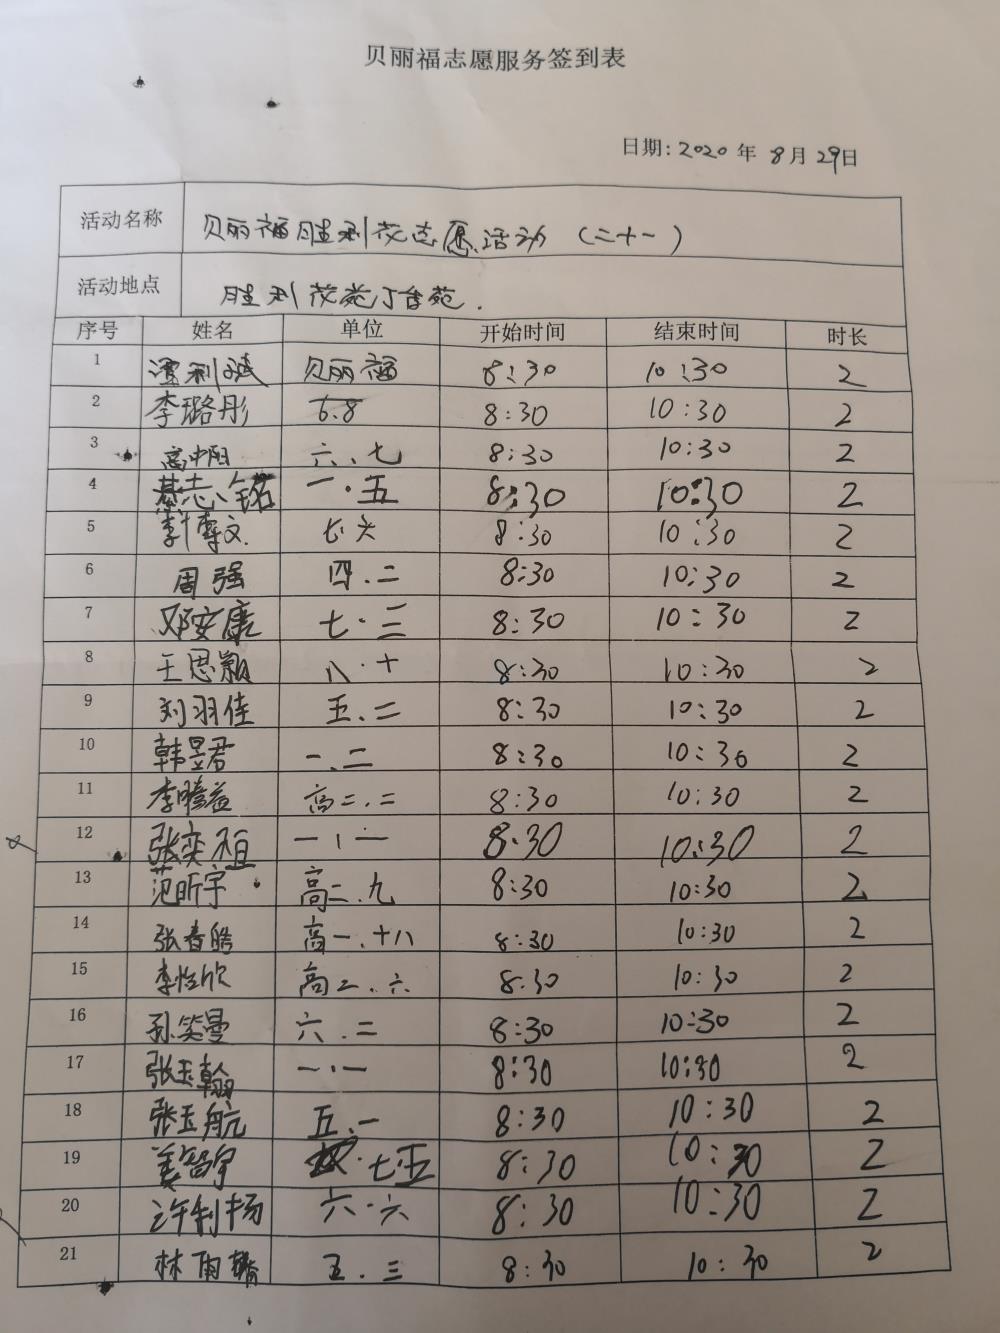 贝丽福志愿服务签到表
日期:2020年8月29日
活动名称 贝丽福胜利茂志愿活动(二十一)
活动地点 胜利茂苑丁香苑.
序号 姓名 单位 开始时间 结束时间 时长
1 贝丽福 8:30 10:30 2
2 李璐彤 6.8 8:30 10:30 2
3 高中阳 六、七 8:30 10:30 2
4 綦志铭 一.五 8:30 10:30 2
5 李博文. 七.六 8:30 10:30 2
6 周强 四.二 8:30 10:30 2
7 邓安康 七.三 8:30 10:30 2
8 王思颖 八.十 8:30 10:30 2
9 刘羽佳 五.二 8:30 10:30 2
10 韩昱君 一、二 8:30 10:30 2
11 李腾益 高二.二 8:30 10:30 2
12 张奕祖 一.一 8:30 10:30 2
13 范昕宇 高二.九 8:30 10:30 2
14 张春皓 高一.十八 8:30 10:30 2
15 李怡欣 高二.六 8:30 10:30 2
16 孙笑曼 六.二 8:30 10:30 2
17 张玉翰 一.一 8:30 10:30 2
18 张玉航 五.一 8:30 10:30 2
19 姜智宇 七五 8:30 10:30 2
20 许利扬 六.六 8:30 10:30 2
21 林雨 五.三 8:30 10:30 2